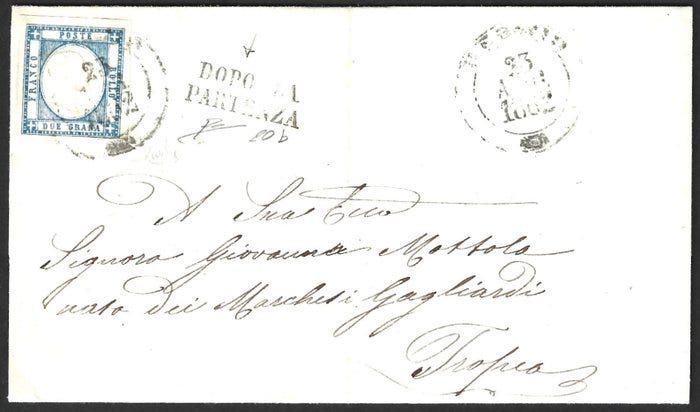 POSTE
FRANCO
BOLLO
DUE GRANA
23
DOPO LA
PARTENZA
23
1862
A Sua Ecca
Signora Giovanna Mottola
nato dei Marchesi Gagliardi
Tropea